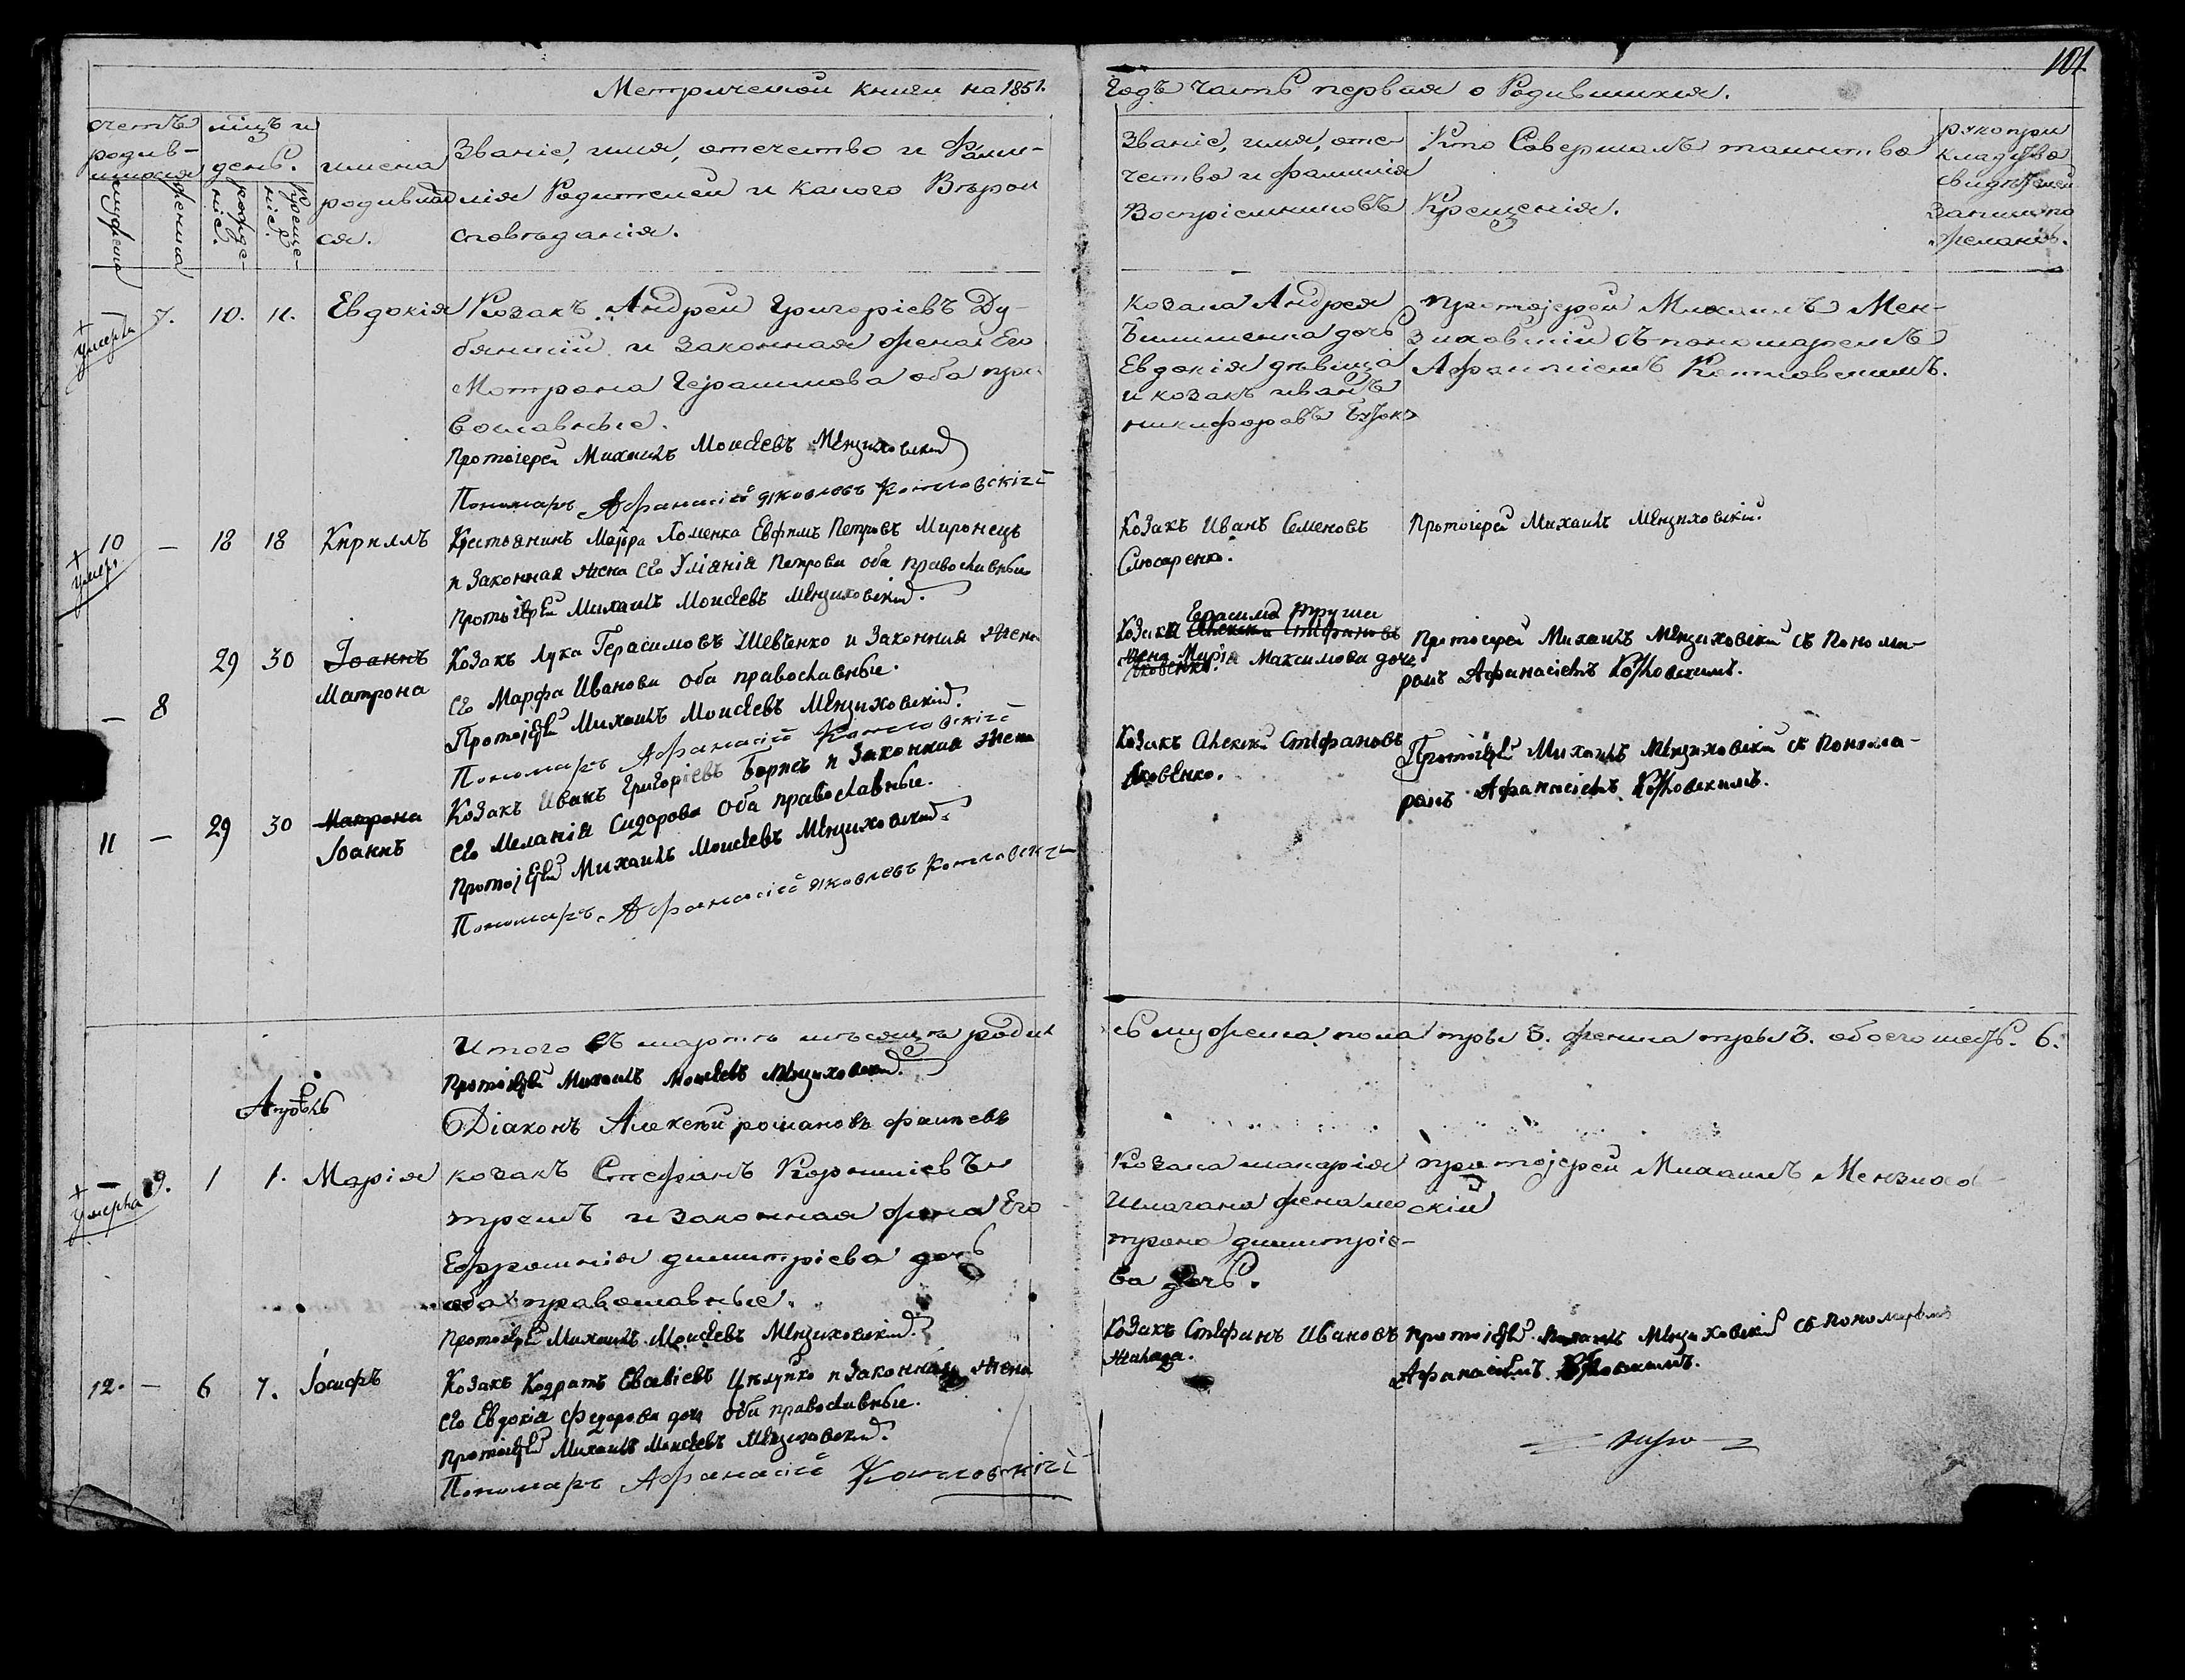 101
Метрической книги на 1851.
Годъ часть первая о Родившихся.
счетъ родив-
шихся
мужеска
женска
день.
рожде-
нія.
креще-
нія.
имена
родивших
ся.
Званіе, имя, отечество и Фами-
лія Родителей и какого Вѣрои
сповѣданія.
Званіе, имя, отe-
чество и фамилія
Воспріемниковъ
Кто Совершалъ таинство
Крещенія.
рукопри
кладство
свидѣтелей
записи по
желанію.
умерла
7. 10. 11. Евдокія
Козакъ Андрей Григоріевъ Ду-
бянскій и законная жена Его
Мотрона Герасимова оба пра
вославные.
Протоіерей Михаилъ Моисеевъ Мензиховскій
Пономарь Афанасій Яковлевъ Котловскій
козака Андрея
дочь
Евдокія дѣвица
и козакъ иванъ
никифоровъ
протоіерей Михаилъ Мен-
зиховскій съ пономаремъ
Афанасіемъ Котловскимъ.
умеръ
10 — 18 18 Кириллъ
Крестьянинъ Маіора Хоменка Евфимъ Петровъ Миронецъ
и Законная жена его Уліянія Петрова оба православные
Протоіерей Михаилъ Моисеевъ Мензиховскій.
Козакъ Иванъ Семеновъ
Слюсаренко.
Протоіерей Михаилъ Мензиховскій.
— 8 29 30 Іоаннъ
Матрона
Козакъ Лука Герасимовъ Шевченко и Законная жена
его Марфа Иванова оба православные.
Протоіерей Михаилъ Моисеевъ Мензиховскій.
Пономарь Афанасій Котловскій
Герасима
Козака Алексѣй Стефановъ
жена Марія Максимова дочь
Яковенко.
Протоіерей Михаилъ Мензиховскій съ Понома-
ремъ Афанасіемъ Котловскимъ.
11 — 29 30 Матрона
Іоаннъ
Козакъ Иванъ Григоріевъ Борисъ и Законная жена
его Меланія Сидорова оба православные.
Протоіерей Михаилъ Моисеевъ Мензиховскій.
Пономарь Афанасій Яковлевъ Котловскій
Козакъ Алексѣй Стефановъ
Яковенко.
Протоіерей Михаилъ Мензиховскій съ Понома-
ремъ Афанасіемъ Котловскимъ.
Итого въ мартѣ мѣсяцѣ родил
сь мужеска пола три 3. женска три 3. обоего шесть. 6.
Протоіерей Михаилъ Моисеевъ Мензиховскій.
Діаконъ Алексѣй романовъ
Апрѣль
умерла
— 9. 1 1. Марія
козакъ Стефанъ Корниліевъ
и законная жена Его
Ефросинія димитріева дочь
оба православные.
Протоіерей Михаилъ Моисеевъ Мензиховскій.
Козака макарія
жена мо
трона димитріе-
ва дочь.
протоіерей Михаилъ Мензихов
скій
12. — 6 7. Іосифъ
Козакъ Кодратъ Цѣлуйко и Законная жена
его Евдокія Федорова дочь оба православные.
Протоіерей Михаилъ Моисеевъ Мензиховскій.
Пономарь Афанасій Котловскій
Козакъ Стефанъ Ивановъ
Протоіерей Михаилъ Мензиховскій съ Пономаремъ
Афанасіемъ Котловскимъ.